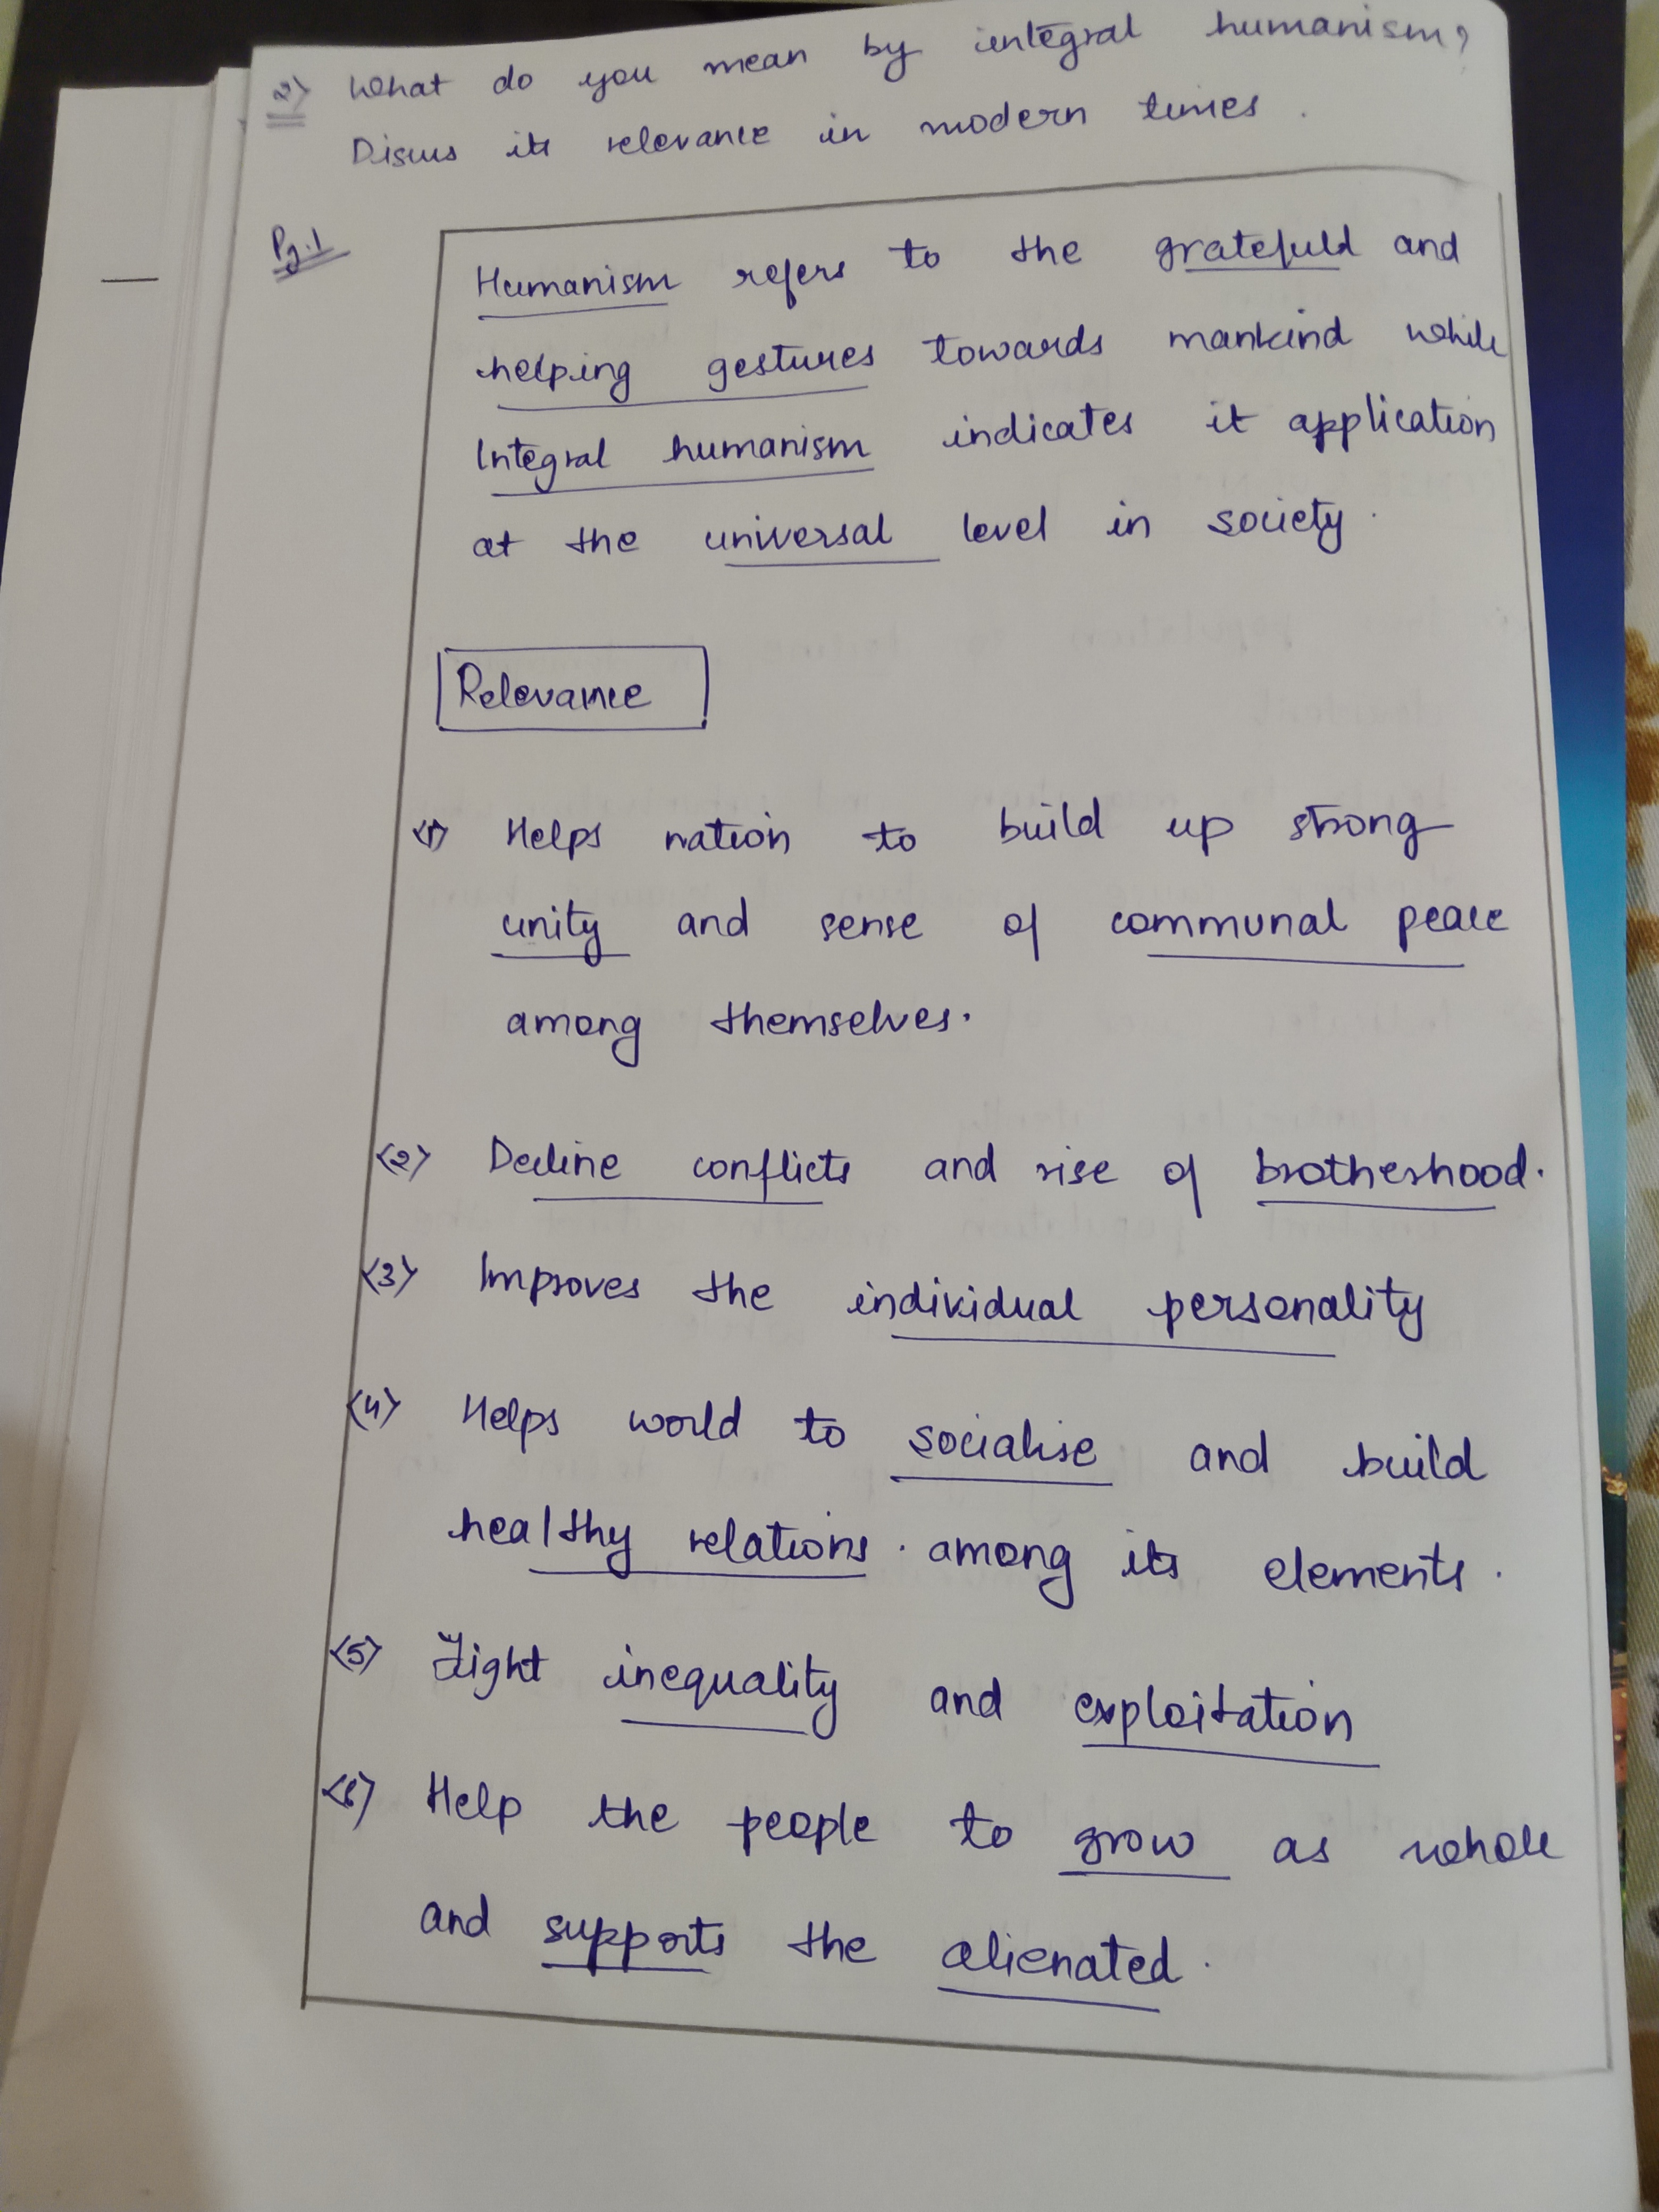 2) What do you mean by integral humanism?
Discuss its relevance in modern times.
Pg.1
Humanism refers to the gratefuld and
helping gestures towards mankind while
Integral humanism indicates it application
at the universal level in society.
Relevance
(1) Helps nation to build up strong
unity and sense of communal peace
among themselves.
(2) Decline conflicts and rise of brotherhood.
(3) Improves the individual personality
(4) Helps world to socialise and build
healthy relations. among its elements.
(5) Fight inequality and exploitation
(6) Help the people to grow as whole
and supports the alienated.